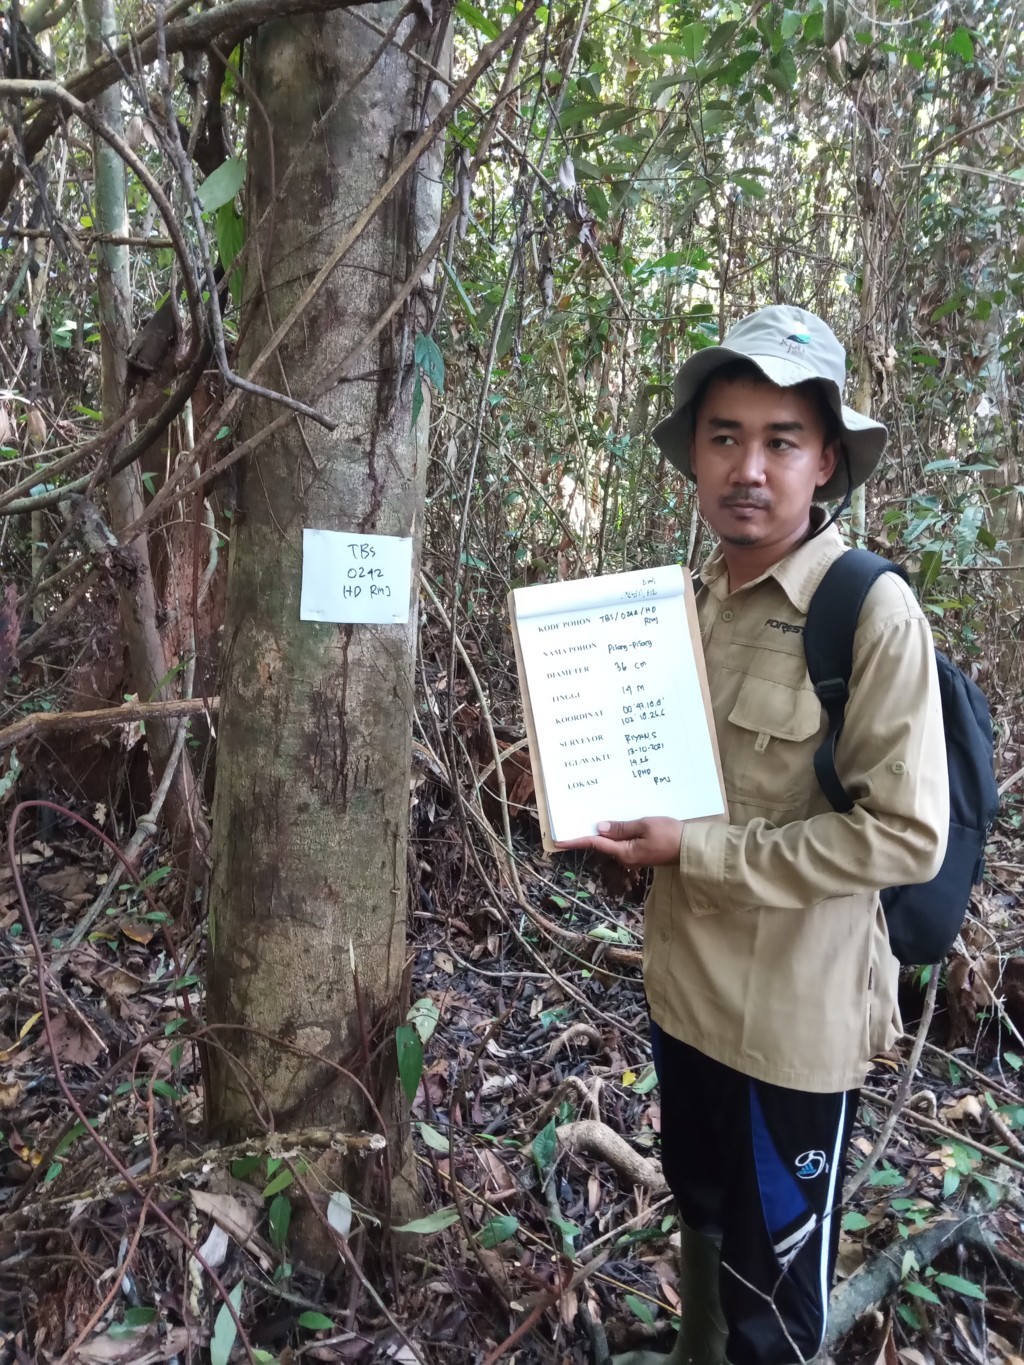 TBS
0242
HD RMJ
KODE POHON TBS/0242/HD
RMJ
NAMA POHON Pisang-Pisang
DIAMETER 36 cm
TINGGI 19 M
KOORDINAT 00°47.10.0'
102 10.266
SURVEYOR RIYAN.S
TGL/WAKTU 13-10-2021
14.26
LOKASI LPHD
RMJ
FOREST